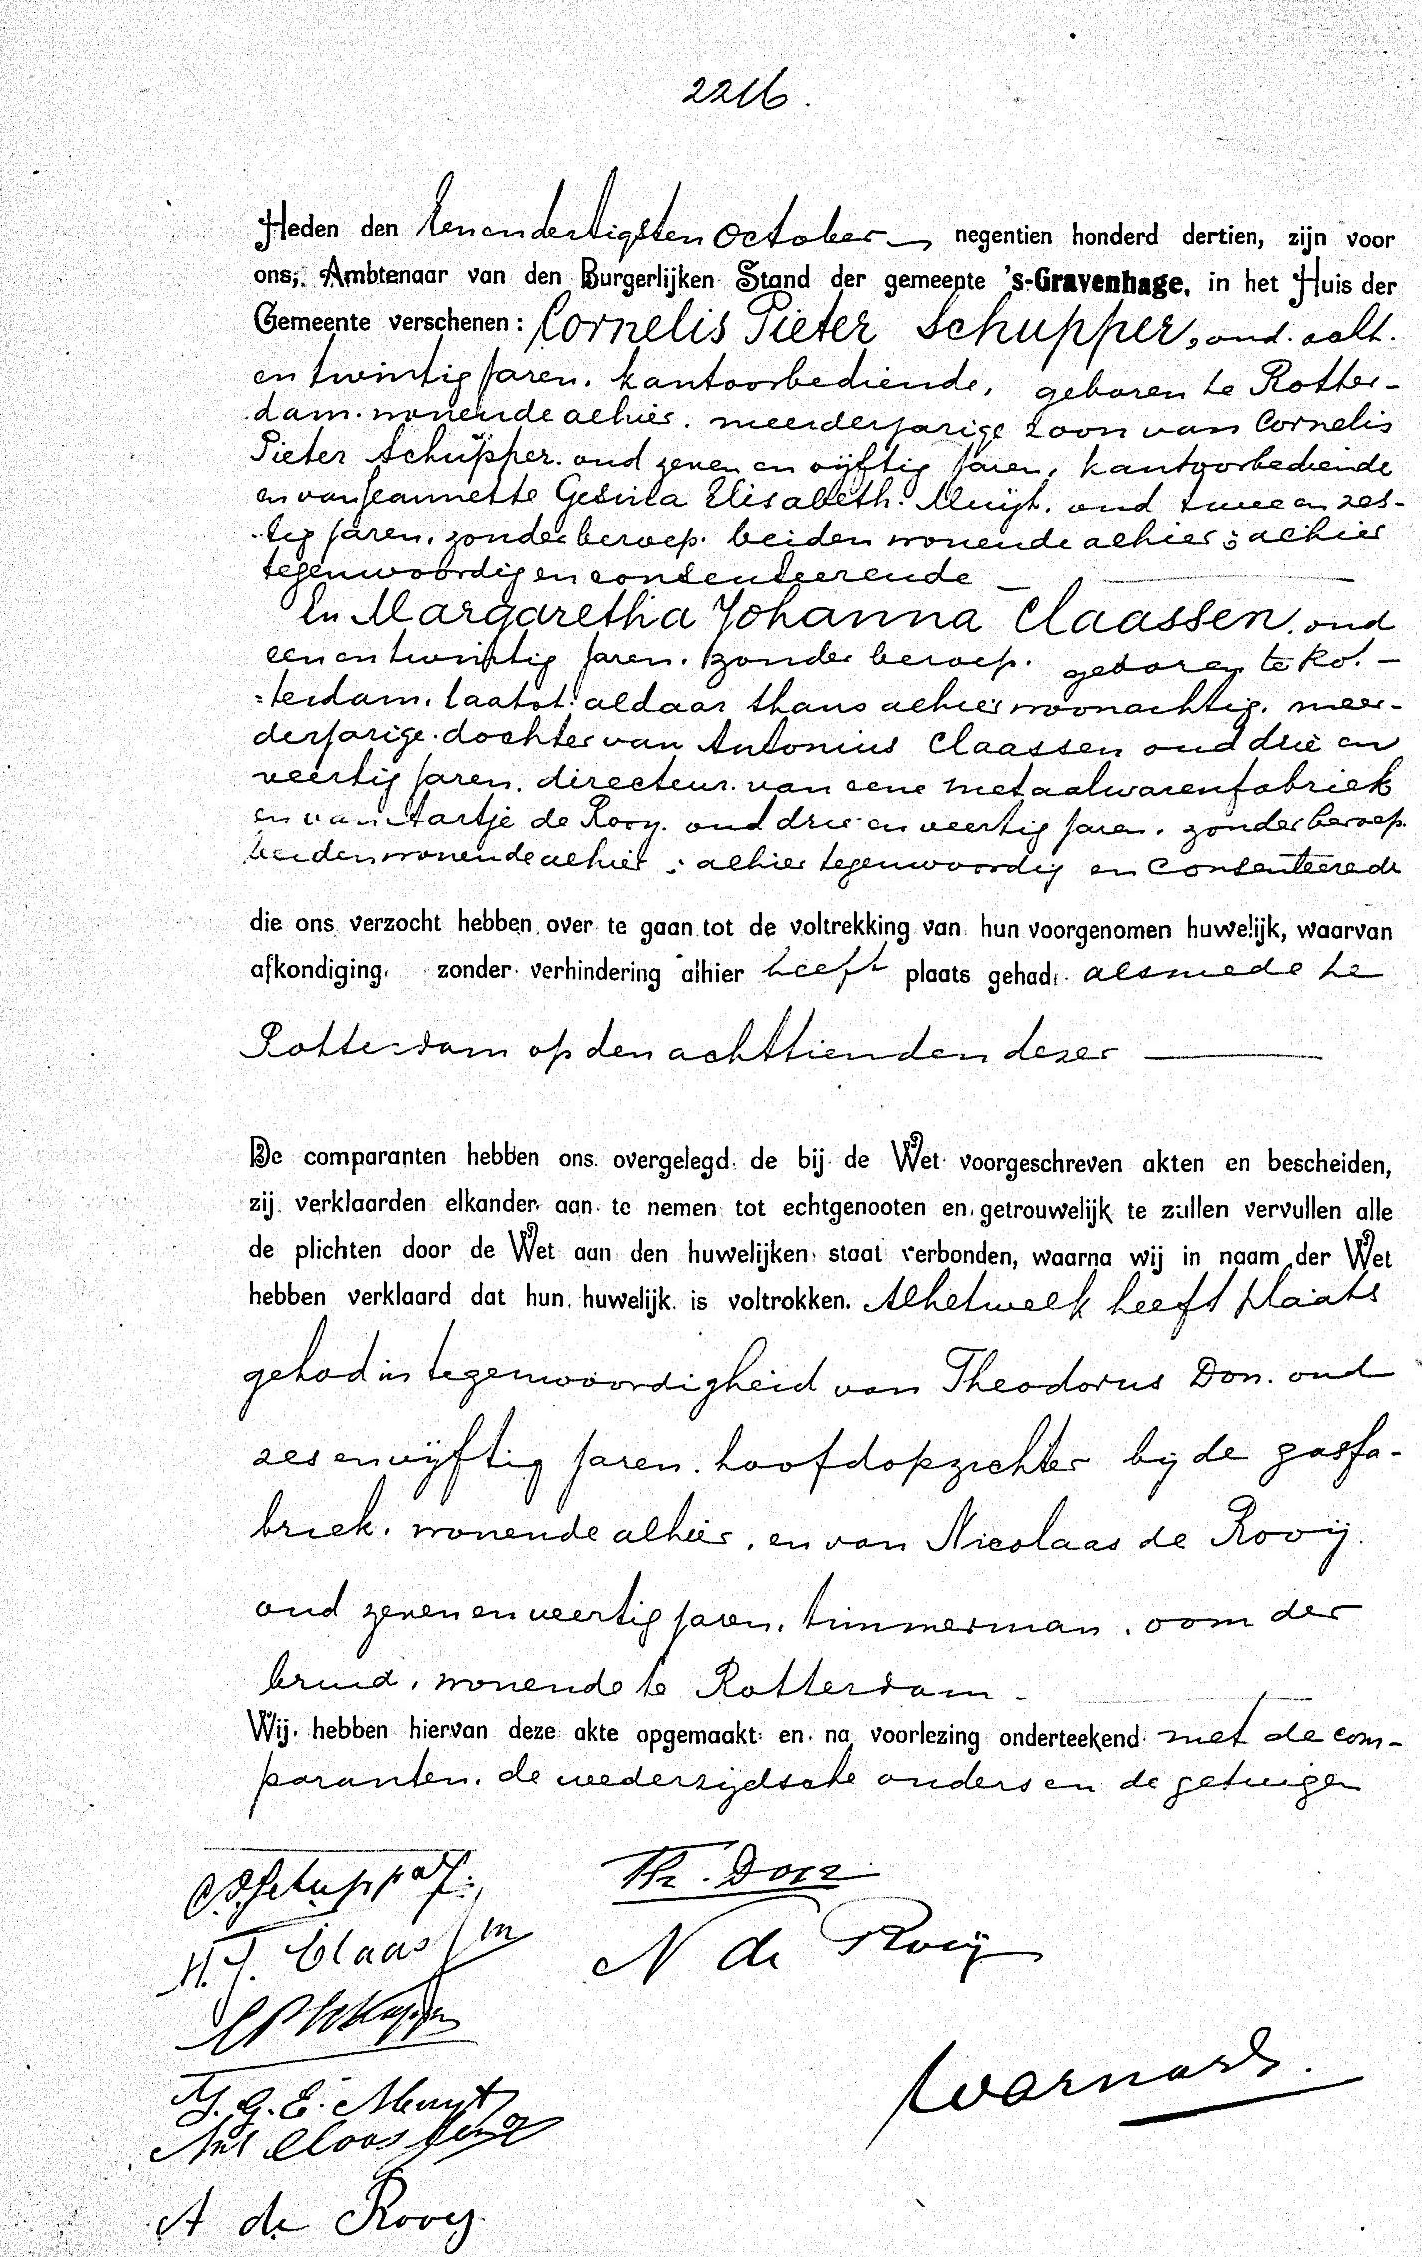 2216.
Heden den Eenendertigsten October negentien honderd dertien, zijn voor
ons, Ambtenaar van den Burgerlijken Stand der gemeente 's-Gravenhage, in het Huis der
Gemeente verschenen: Cornelis Pieter Schupper, oud acht.
en twintig jaren. kantoorbediende, geboren te Rotter-
dam. wonende alhier. meerderjarige zoon van Cornelis
Pieter Schupper. oud zeven en vijftig jaren, kantoorbediende
en van Jeannette Gesina Elisabeth Muijt. oud twee en zes-
tig jaren, zonder beroep. beiden wonende alhier; alhier
tegenwoordig en consenteerende
En Margaretha Johanna Claassen. oud
een en twintig jaren. zonder beroep. geboren te Rot.-
terdam, laatst aldaar thans alhier woonachtig. meer-
derjarige dochter van Antonius Claassen oud drie en
veertig jaren. directeur van eene metaalwarenfabriek
en van Aartje de Rooy. oud drie en veertig jaren. zonder beroep.
beiden wonende alhier; alhier tegenwoordig en consenteerende
die ons verzocht hebben over te gaan tot de voltrekking van hun voorgenomen huwelijk, waarvan
afkondiging zonder verhindering alhier heeft plaats gehad alsmede te
Rotterdam op den achttienden dezer
De comparanten hebben ons overgelegd de bij de Wet voorgeschreven akten en bescheiden,
zij verklaarden elkander aan te nemen tot echtgenooten en getrouwelijk te zullen vervullen alle
de plichten door de Wet aan den huwelijken staat verbonden, waarna wij in naam der Wet
hebben verklaard dat hun huwelijk is voltrokken. Alhetwelk heeft plaats
gehad in tegenwoordigheid van Theodorus Don. oud
zes en vijftig jaren. hoofdopzichter bij de gasfa-
briek. wonende alhier, en van Nicolaas de Rooij.
oud zeven en veertig jaren, timmerman, oom der
bruid, wonende te Rotterdam
Wij hebben hiervan deze akte opgemaakt en na voorlezing onderteekend met de com-
paranten. de wederzijdsche ouders en de getuigen
C.P. Schupper Jr.
M.J. Claassen
C P Schupper
J. G. E. Muijt
Ant Claassen
A de Rooy
Th. Don
N de Rooij
Warnars.